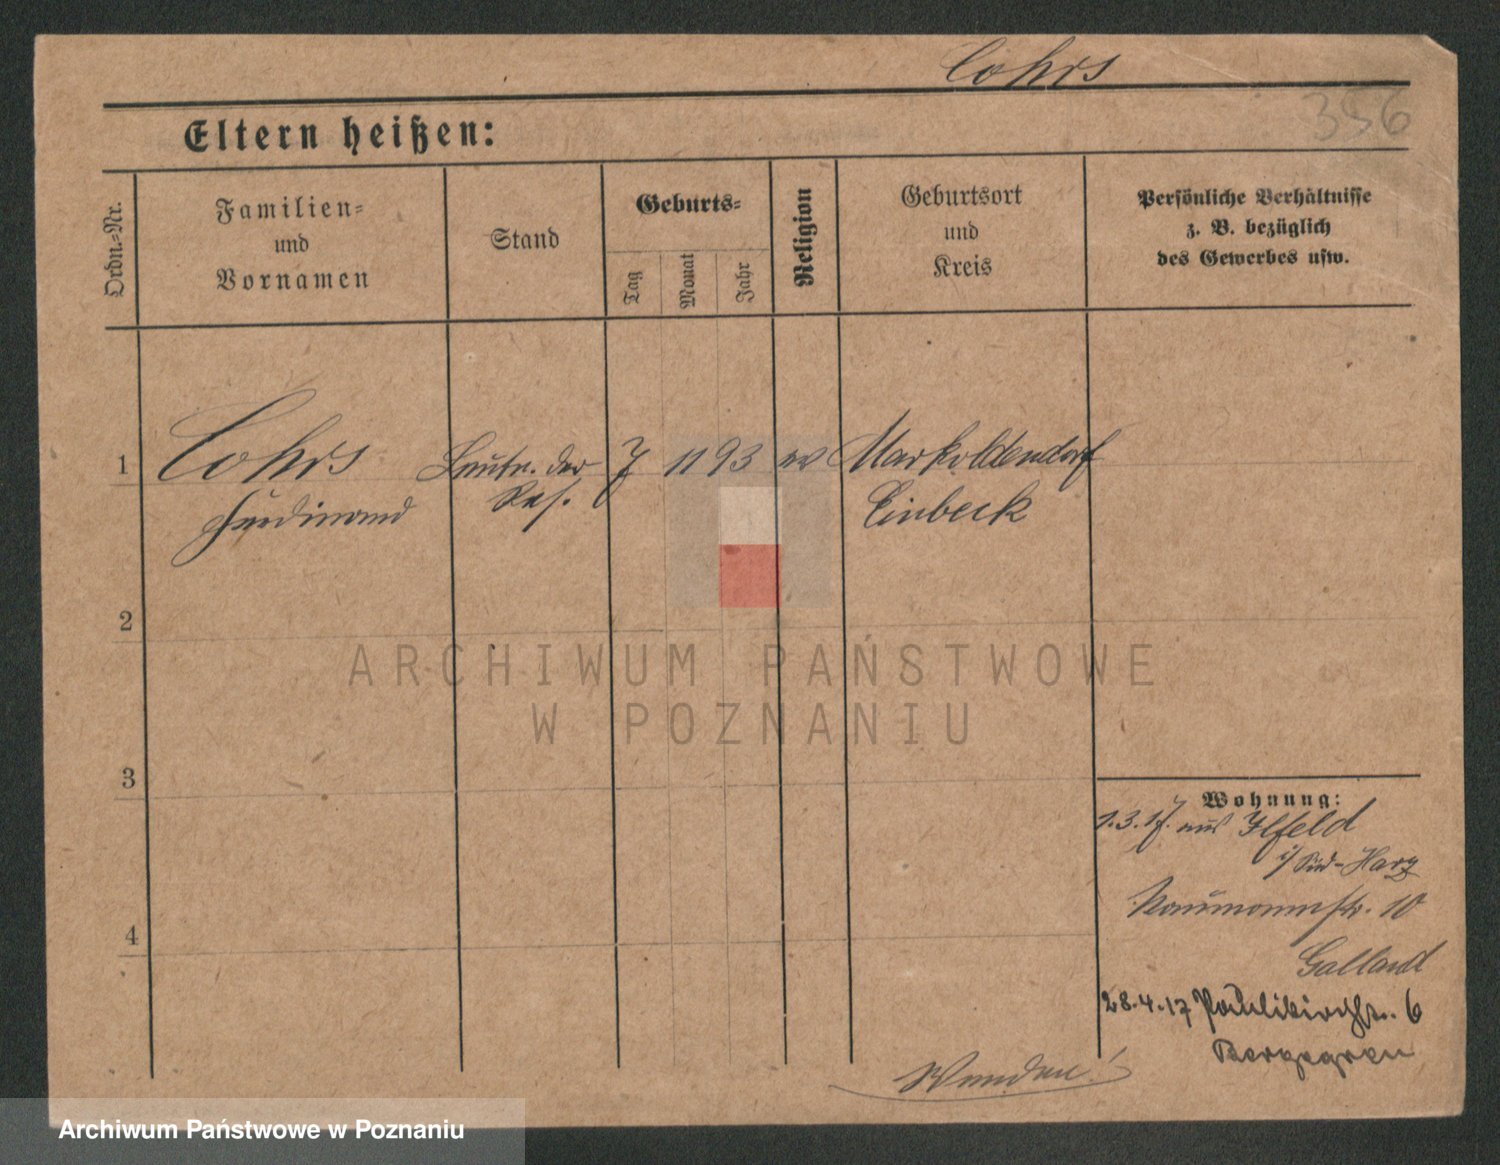 Cohrs
356
Eltern heißen:
Ordn.-Nr.
Familien-
und
Vornamen
Stand
Geburts-
Tag
Monat
Jahr
Religion
Geburtsort
und
Kreis
Persönliche Verhältnisse
z. B. bezüglich
des Gewerbes usw.
1
Cohrs
Ferdinand
Leutn. der
Res.
7
11
93
ev
Markoldendorf
Einbeck
2
ARCHIWUM PAŃSTWOWE
W POZNANIU
3
4
Wohnung:
1.3.17. aus Ilfeld
i/ Süd-Harz
Naumannstr. 10
Galland
28.4.17 Paulikirchstr. 6
Wenden!
Archiwum Państwowe w Poznaniu